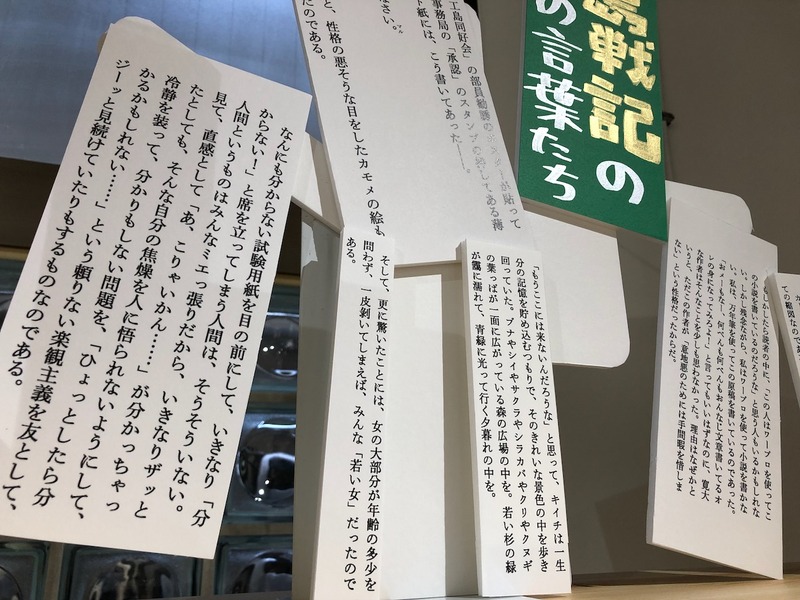 島戦記の
の言葉たち
工島同好会」の部員勧誘のポスターが貼って
事務局の「承認」のスタンプの
ト紙には、こう書いてあった――。
なさい。
と、性格の悪そうな目をしたカモメの絵も
たのである。
なんにも分からない試験用紙を目の前にして、いきなり「分
からない!」と席を立ってしまう人間は、そうそういない。
人間というものはみんなミエっ張りだから、いきなりザッと
見て、直感として「あ、こりゃいかん……」が分かっちゃっ
たとしても、そんな自分の焦燥を人に悟られないようにして、
冷静を装って、分かりもしない問題を、「ひょっとしたら分
かるかもしれない……」という頼りない楽観主義を友として、
ジーッと見続けていたりもするものなのである。
そして、更に驚いたことには、女の大部分が年齢の多少を
問わず、一皮剥いてしまえば、みんな「若い女」だったので
ある。
「もうここには来ないんだろうな」と思って、キイチは一生
分の記憶を貯め込むつもりで、そのきれいな景色の中を歩き
回っていた。ブナやシイやサクラやシラカバやクリやクヌギ
の葉っぱが一面に広がっている森の広場の中を。若い杉の緑
が靄に濡れて、青緑に光って行く夕暮れの中を。
もしかしたら読者の中に、この人はワープロを使ってこ
の小説を書いているのだろうな」と思う人もいるかもしれな
い。しかし残念ながら、私はワープロを使って小説を書かな
い。私は、万年筆を使ってこの原稿を書いているのであった。
「おメーもなー、何べんも何べんもおんなじ文章書いてるオ
レの身になってみろよ!」と言ってもいいはずなのに、寛大
な作者はそんなことを少しも思わなかった。理由はなぜかと
いうと、ただこの作者が、「意地悪のためには手間暇を惜しま
ない」という性格だったからだ。
ての縮図なので